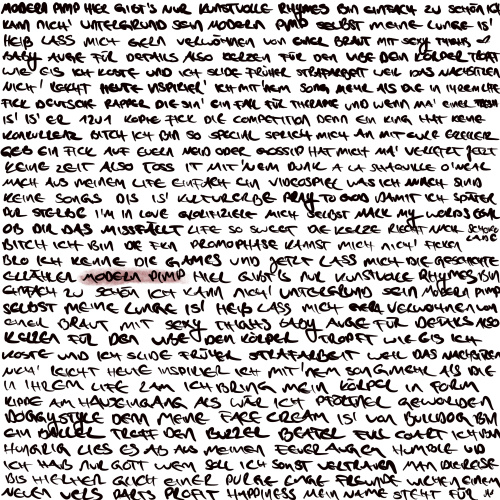 MODERN PIMP HIER GIBT'S NUR KUNSTVOLLE RHYMES BIN EINFACH ZU SCHÖN ICH
KANN NICH' UNTERGRUND SEIN MODERN PIMP SELBST MEINE LUNGE IS'
HEIß LASS MICH GERN VERWÖHNEN VON EINER BRAUT MIT SEXY THIGHS
BABY AUGE FÜR DETAILS ALSO KERZEN FÜR DEN VIBE DEN KÖRPER TROPFT
WIE EIS ICH KOSTE UND ICH SLIDE FRÜHER STRAFARBEIT WEIL DAS NACHSITZEN
NICH' REICHT HEUTE INSPIRIER' ICH MIT 'NEM SONG MEHR ALS DIE IN IHREM LIFE
FICK DEUTSCHE RAPPER DIE SIN' EIN FALL FÜR THERAPIE UND WENN MA' EINER
IS' IS' ER 1ZU1 KOPIE FICK DIE COMPETITION DENN EIN KING HAT KEINE
KONKURRENZ BITCH ICH BIN SO SPECIAL SPRICH MICH AN MIT EURE EXZELLENZ
GEB EIN FICK AUF EUERN NEID ODER GOSSIP HAT MICH MA' VERLETZT JETZT
KEINE ZEIT ALSO TOSS IT MIT 'NEM DUNK A LA SHAQUILLE O'NEAL
MACH AUS MEINEM LIFE EINFACH EIN VIDEOSPIEL WAS ICH MACH SIND
KEINE SONGS DIS IS' KULTURERBE PRAY TO GOD DAMIT ICH SPÄTER
NUR STERBE I'M IN LOVE GLORIFIZIERE MICH SELBST MARK MY WORDS EGAL
OB DIR DAS MISSFÄLLT LIFE SO SWEET DIE KERZE RIECHT NACH SCHOKOLADE
BITCH ICH BIN DIE FKN PROMOPHASE KANNST MICH NICH' FICKEN
BRO ICH KENNE DIE GAMES UND JETZT LASS MICH DIE GESCHICHTE
ERZÄHLEN MODERN PIMP HIER GIBT'S NUR KUNSTVOLLE RHYMES BIN
EINFACH ZU SCHÖN ICH KANN NICH' UNTERGRUND SEIN MODERN PIMP
SELBST MEINE LUNGE IS' HEIß LASS MICH GERN VERWÖHNEN VON
EINER BRAUT MIT SEXY THIGHS BABY AUGE FÜR DETAILS ALSO
KERZEN FÜR DEN VIBE DEN KÖRPER TROPFT WIE EIS ICH
KOSTE UND ICH SLIDE FRÜHER STRAFARBEIT WEIL DAS NACHSITZEN
NICH' REICHT HEUTE INSPIRIER ICH MIT 'NEM SONG MEHR ALS DIE
IN IHREM LIFE ICH BRING MEIN KÖRPER IN FORM
KIPPE AM HAUSEINGANG ALS WÄR ICH PFÖRTNER GEWORDEN
DOGGYSTYLE DENN MEINE FACE CREAM IS' VON BULLDOG BIN
EIN BALLER TREFF DEN BUZZER BEATER FULL COURT ICH BIN
HUNGRIG LIES ES AB AUS MEINEN FEUERAUGEN HUMBLE UND
ICH HAB NUR GOTT WEM SOLL ICH SONST VERTRAUEN MAN DIE REISE
BIS HIERHER GLICH EINER PURGE LUNGE FREUNDE WICHEN EINEM
NEUEN VERS PARTS PROFIT HAPPINESS MEIN NAME STEHT FÜR